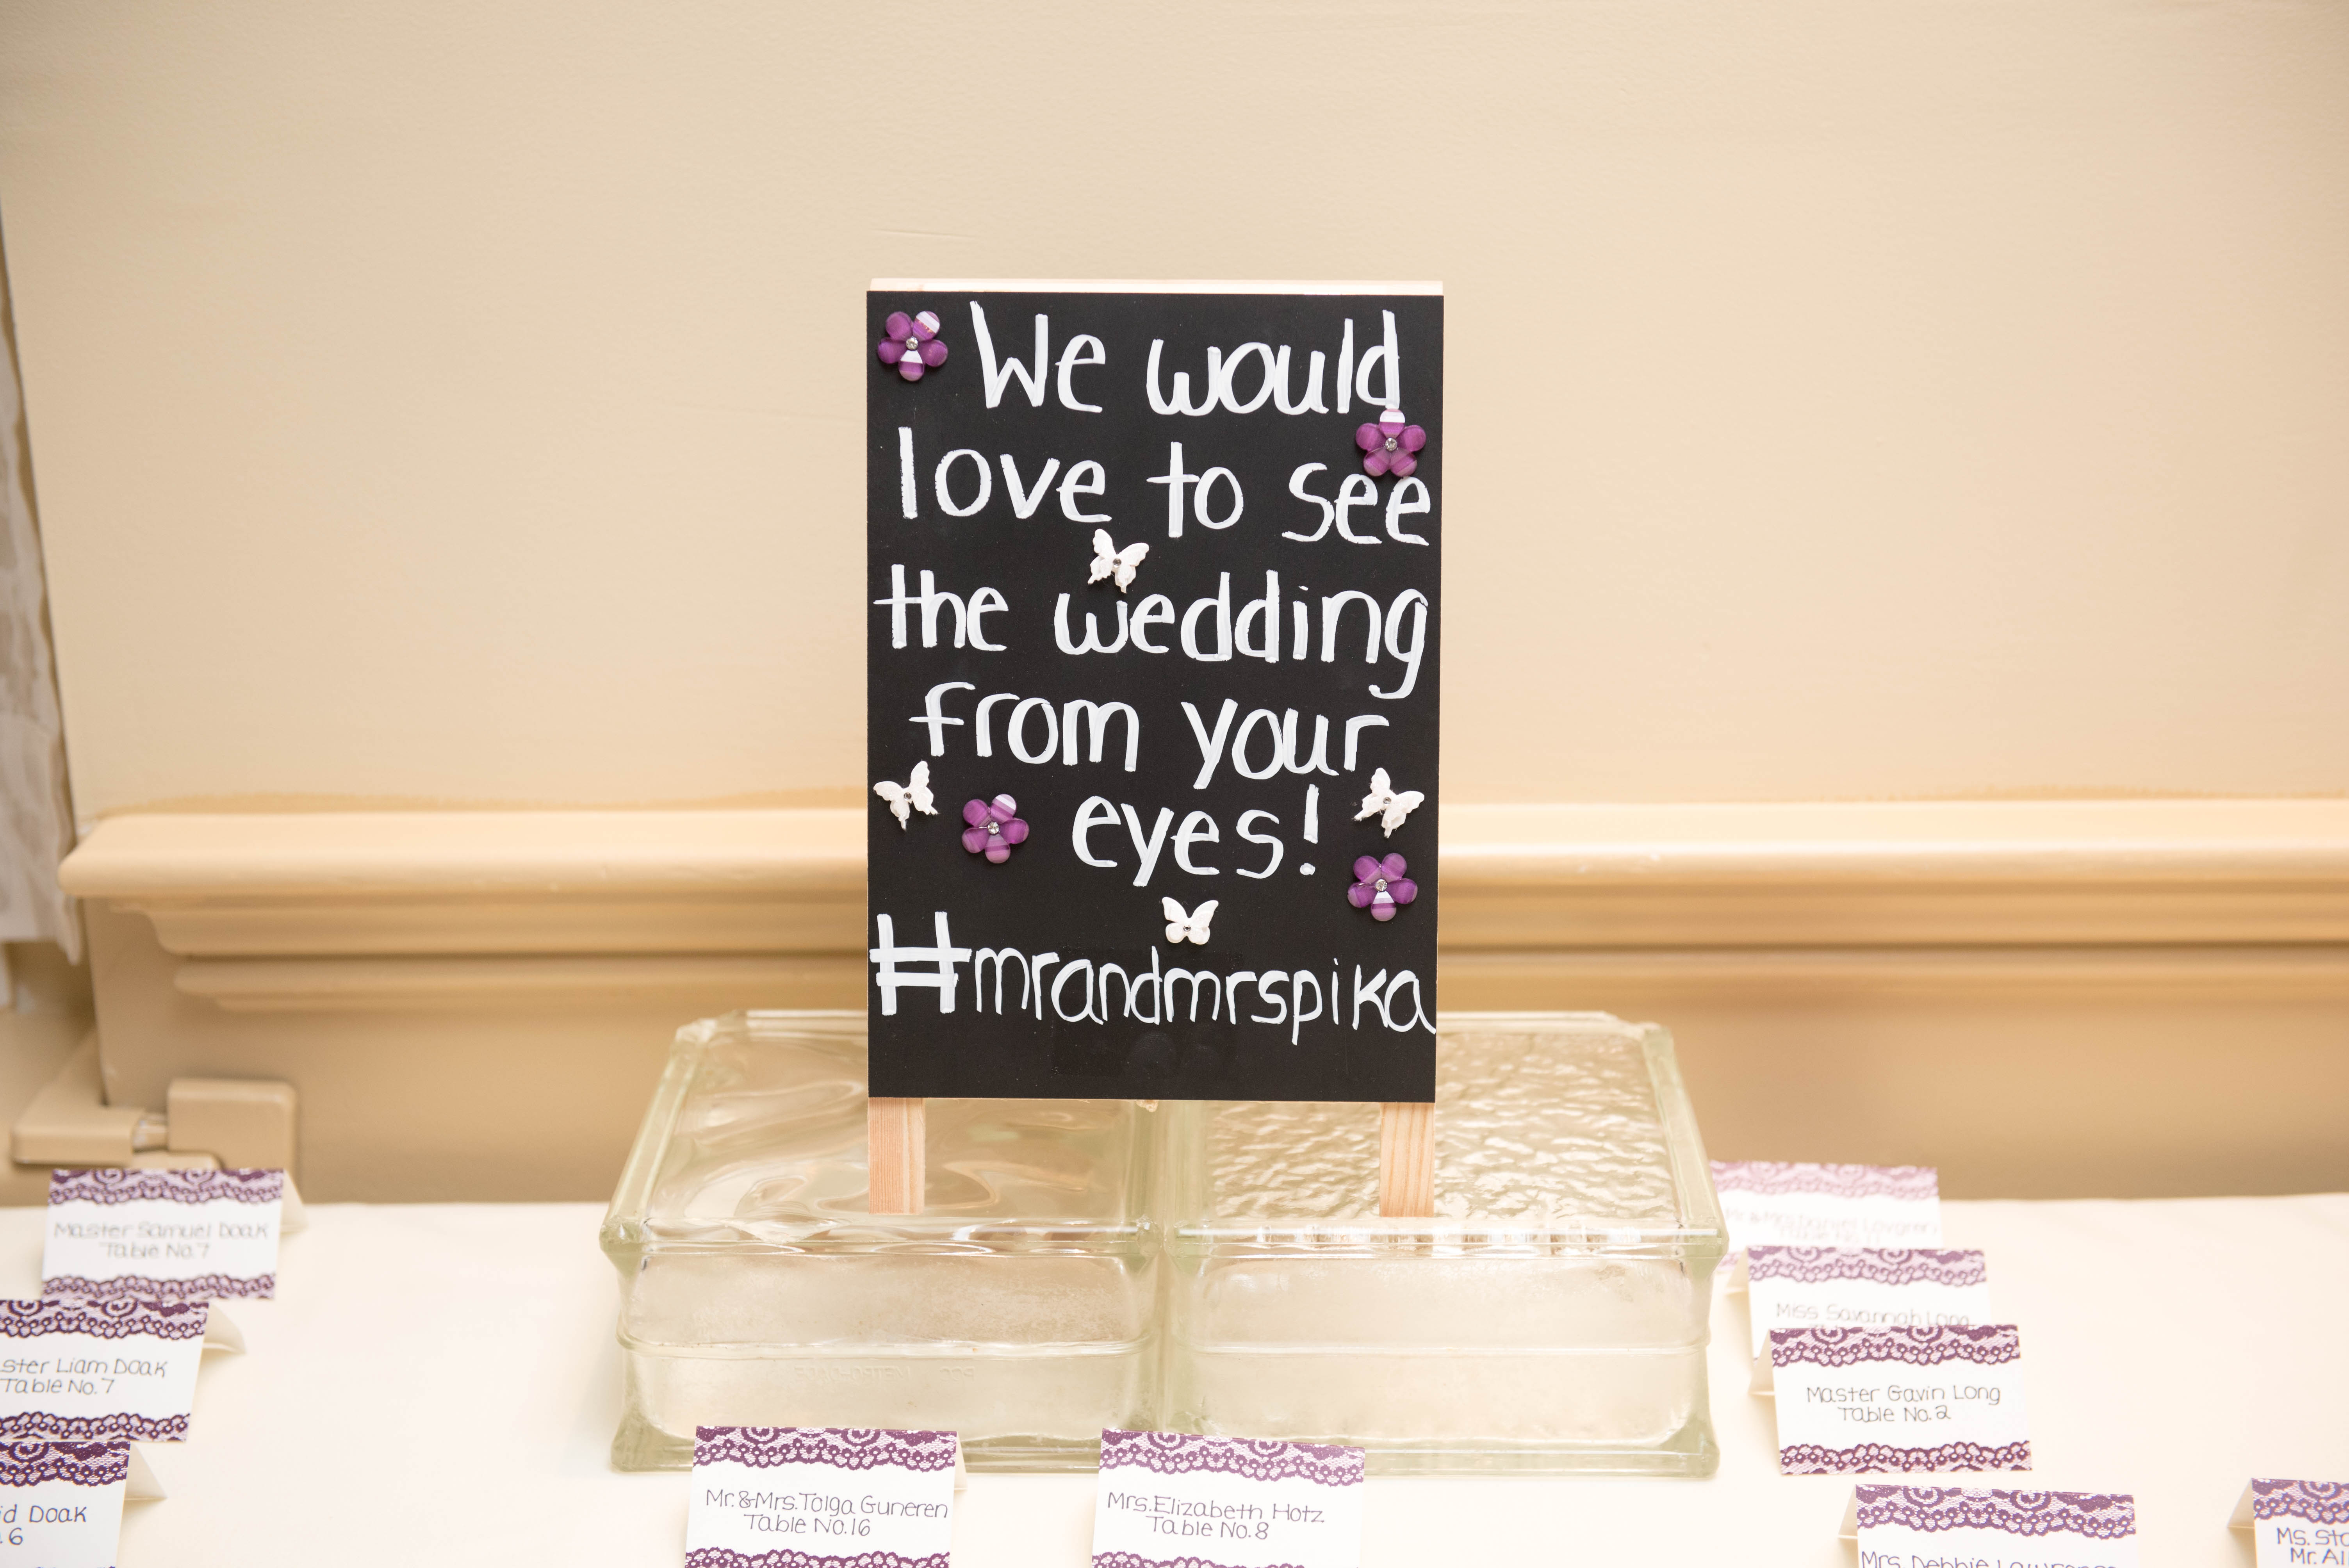 We would
love to see
the wedding
from your
eyes!
#mrandmrspika
Master Samuel Doak
Table No.7
Liam Doak
Table No.7
Doak
6
Mr.&Mrs.Tolga Guneren
Table No.16
Mrs.Elizabeth Hotz
Table No.8
Mr.&Mrs.Daniel
Miss Savannah Long
Master Gavin Long
Table No.2
Mrs. Debbie
Ms.
Mr.